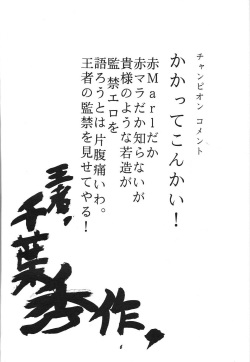 チャンピオン コメント
かかってこんかい！
赤Marlだか
赤マラだか知らないが
貴様のような若造が
監禁エロを
語ろうとは片腹痛いわ。
王者の監禁を見せてやる！
王者、
千葉秀作、